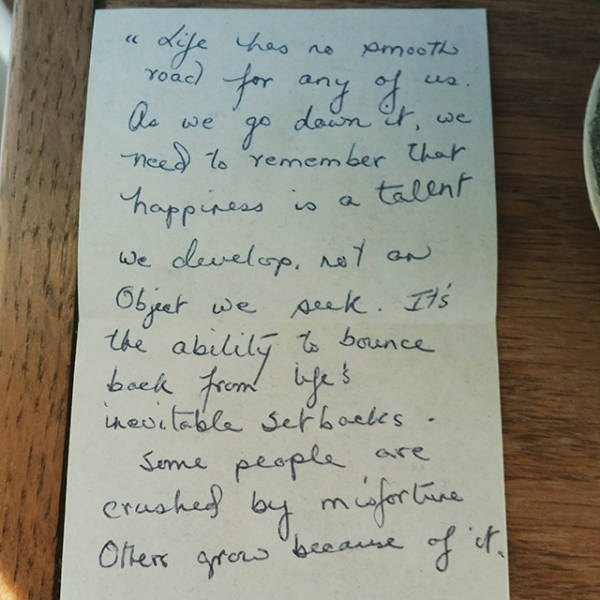 “ Life has no smooth
road for any of us.
As we go down it, we
need to remember that
happiness is a talent
we develop, not an
Object we seek. It's
the ability to bounce
back from life's
inevitable setbacks.
Some people are
crushed by misfortune
Others grow because of it.